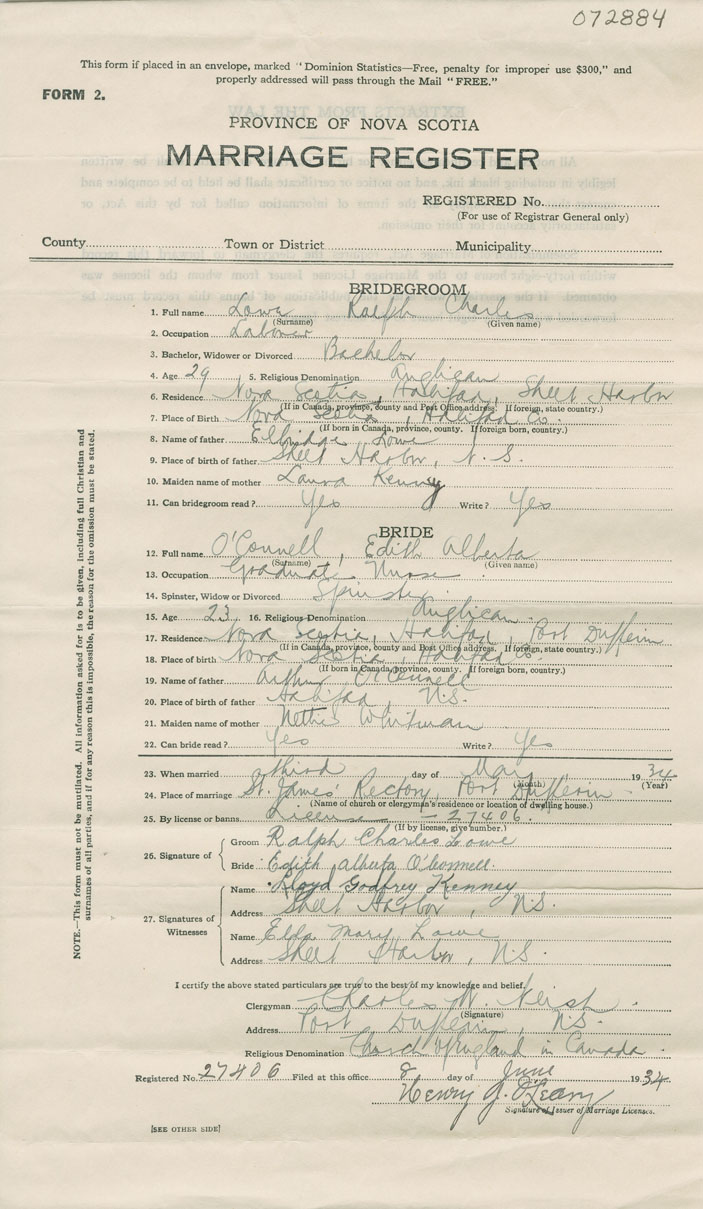 072884
This form if placed in an envelope, marked "Dominion Statistics—Free, penalty for improper use $300," and
properly addressed will pass through the Mail "FREE."
FORM 2.
PROVINCE OF NOVA SCOTIA
MARRIAGE REGISTER
REGISTERED No.
(For use of Registrar General only)
County Town or District Municipality
BRIDEGROOM
1. Full name Lowe Ralph Charles
(Surname) (Given name)
2. Occupation Labourer
3. Bachelor, Widower or Divorced Bachelor
4. Age 29 5. Religious Denomination Anglican
6. Residence Nova Scotia, Halifax, Sheet Harbor
(If in Canada, province, county and Post Office address. If foreign, state country.)
7. Place of Birth Nova Scotia, Halifax Co.
(If born in Canada, province, county. If foreign born, country.)
8. Name of father Elbridge Lowe
9. Place of birth of father Sheet Harbor, N.S.
10. Maiden name of mother Laura Kenney
11. Can bridegroom read? Yes Write? Yes
BRIDE
12. Full name O'Connell, Edith Alberta
(Surname) (Given name)
13. Occupation Graduate Nurse
14. Spinster, Widow or Divorced Spinster
15. Age 23 16. Religious Denomination Anglican
17. Residence Nova Scotia, Halifax, Port Dufferin
(If in Canada, province, county and Post Office address. If foreign, state country.)
18. Place of birth Nova Scotia, Halifax Co.
(If born in Canada, province, county. If foreign born, country.)
19. Name of father Arthur O'Connell
20. Place of birth of father Halifax, N.S.
21. Maiden name of mother Nettie Whitman
22. Can bride read? Yes Write? Yes
23. When married third day of May 1934
(Month) (Year)
24. Place of marriage St. James' Rectory, Port Dufferin
(Name of church or clergyman's residence or location of dwelling house.)
25. By license or banns License — 27406.
(If by license, give number.)
26. Signature of
Groom Ralph Charles Lowe
Bride Edith Alberta O'Connell.
27. Signatures of Witnesses
Name Lloyd Godfrey Kenney
Address Sheet Harbor, N.S.
Name Elda Mary Lowe
Address Sheet Harbor, N.S.
I certify the above stated particulars are true to the best of my knowledge and belief.
Clergyman Charles W. Neish
(Signature)
Address Port Dufferin, N.S.
Religious Denomination Church of England in Canada.
Registered No. 27406 Filed at this office 8 day of June 1934
Henry J. O'Leary
Signature of Issuer of Marriage Licenses.
[SEE OTHER SIDE]
NOTE.—This form must not be mutilated. All information asked for is to be given, including full Christian and
surnames of all parties, and if for any reason this is impossible, the reason for the omission must be stated.